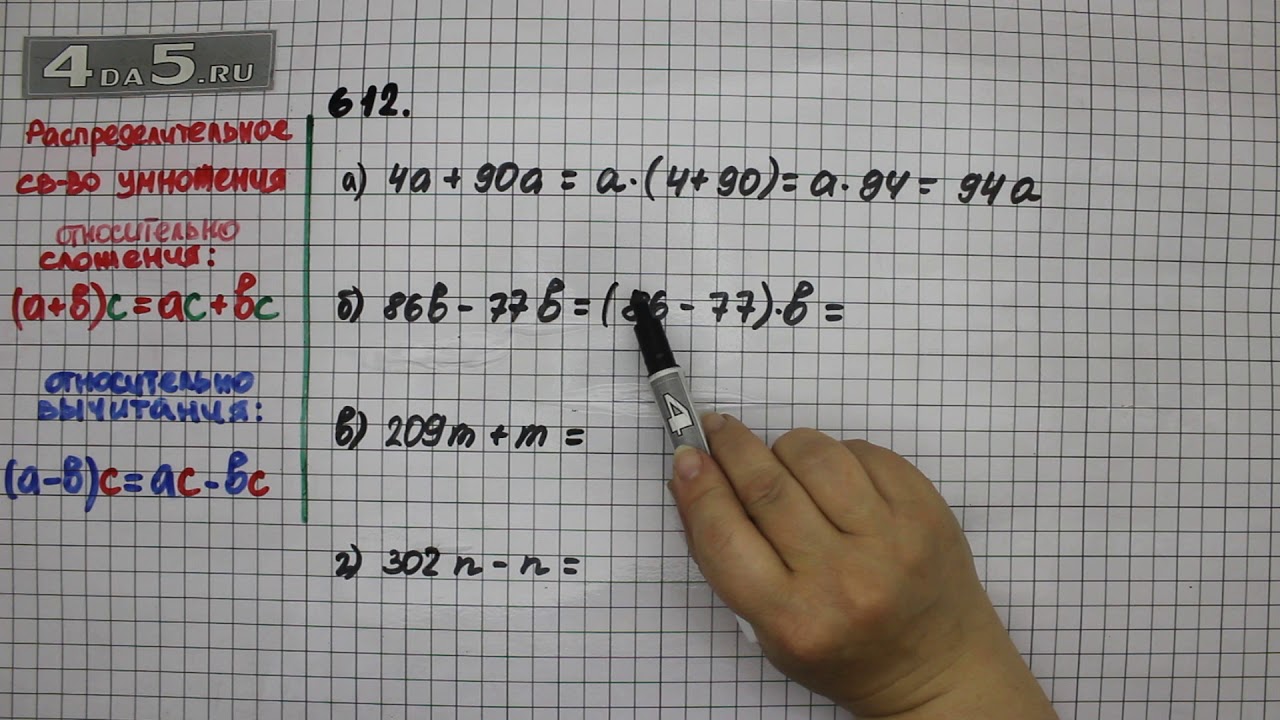 4DA5.RU
Распределительное
св-во умножения
относительно
сложения:
(a+b)c=ac+bc
относительно
вычитания:
(a-b)c=ac-bc
612.
а) 4a + 90a = a·(4+90)= a·94 = 94a
б) 86b - 77b = (86 - 77)·b =
в) 209m + m =
г) 302n - n =
4